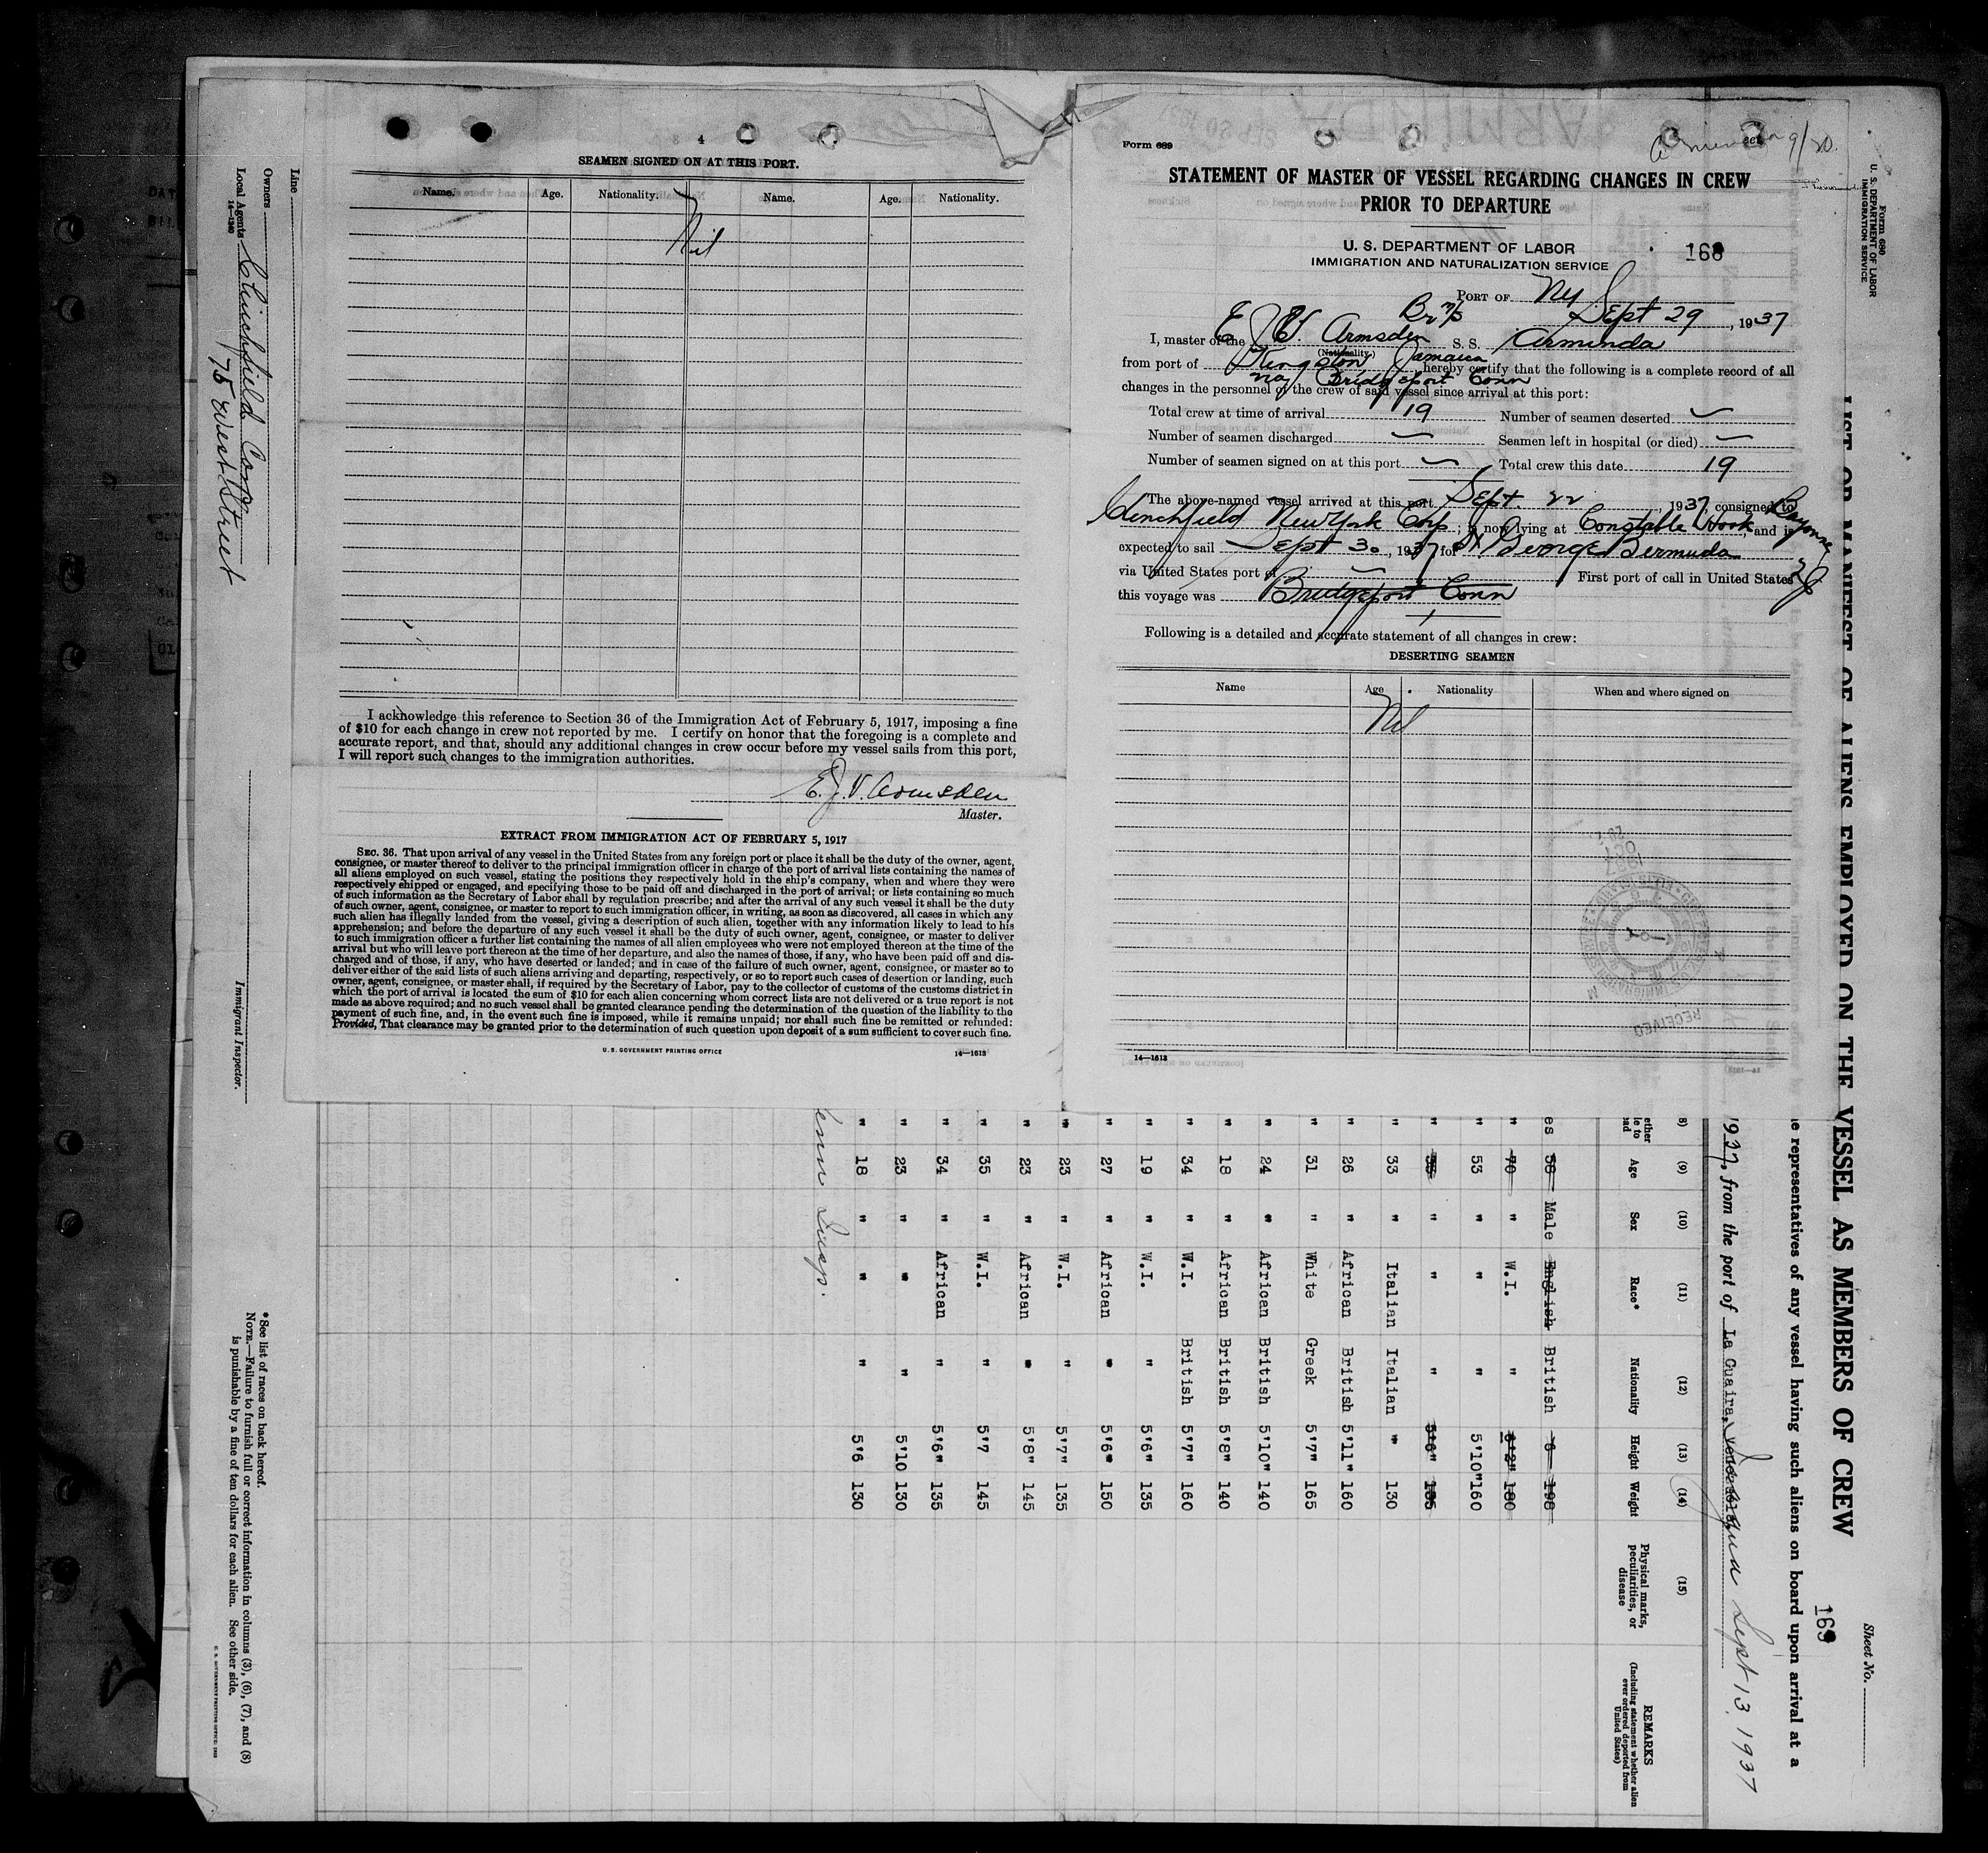 4
SEAMEN SIGNED ON AT THIS PORT.
Name. Age. Nationality. Name. Age. Nationality.
Nil
I acknowledge this reference to Section 36 of the Immigration Act of February 5, 1917, imposing a fine
of $10 for each change in crew not reported by me. I certify on honor that the foregoing is a complete and
accurate report, and that, should any additional changes in crew occur before my vessel sails from this port,
I will report such changes to the immigration authorities.
E. J. V. Armsden
Master.
EXTRACT FROM IMMIGRATION ACT OF FEBRUARY 5, 1917
SEC. 36. That upon arrival of any vessel in the United States from any foreign port or place it shall be the duty of the owner, agent,
consignee, or master thereof to deliver to the principal immigration officer in charge of the port of arrival lists containing the names of
all aliens employed on such vessel, stating the positions they respectively hold in the ship's company, when and where they were
respectively shipped or engaged, and specifying those to be paid off and discharged in the port of arrival; or lists containing so much
of such information as the Secretary of Labor shall by regulation prescribe; and after the arrival of any such vessel it shall be the duty
of such owner, agent, consignee, or master to report to such immigration officer, in writing, as soon as discovered, all cases in which any
such alien has illegally landed from the vessel, giving a description of such alien, together with any information likely to lead to his
apprehension; and before the departure of any such vessel it shall be the duty of such owner, agent, consignee, or master to deliver
to such immigration officer a further list containing the names of all alien employees who were not employed thereon at the time of the
arrival but who will leave port thereon at the time of her departure, and also the names of those, if any, who have been paid off and dis-
charged and of those, if any, who have deserted or landed; and in case of the failure of such owner, agent, consignee, or master so to
deliver either of the said lists of such aliens arriving and departing, respectively, or so to report such cases of desertion or landing, such
owner, agent, consignee, or master shall, if required by the Secretary of Labor, pay to the collector of customs of the customs district in
which the port of arrival is located the sum of $10 for each alien concerning whom correct lists are not delivered or a true report is not
made as above required; and no such vessel shall be granted clearance pending the determination of the question of the liability to the
payment of such fine, and, in the event such fine is imposed, while it remains unpaid; nor shall such fine be remitted or refunded:
Provided, That clearance may be granted prior to the determination of such question upon deposit of a sum sufficient to cover such fine.
U. S. GOVERNMENT PRINTING OFFICE 14—1613
Form 689
STATEMENT OF MASTER OF VESSEL REGARDING CHANGES IN CREW
PRIOR TO DEPARTURE
U. S. DEPARTMENT OF LABOR
IMMIGRATION AND NATURALIZATION SERVICE
168
PORT OF NY
Sept 29, 1937
I, master of the E J V. Armsden Br M/S S. S. Arminda
(Nationality)
from port of Kingston, Jamaica hereby certify that the following is a complete record of all
Bridgeport Conn
changes in the personnel of the crew of said vessel since arrival at this port:
Total crew at time of arrival 19 Number of seamen deserted —
Number of seamen discharged — Seamen left in hospital (or died) —
Number of seamen signed on at this port — Total crew this date 19
The above-named vessel arrived at this port Sept. 22, 1937, consigned to
Clinchfield New York Corp; is now lying at Constable Hook Bayonne NJ, and is
expected to sail Sept 30, 1937 for St. George Bermuda
via United States port of — First port of call in United States
this voyage was Bridgeport Conn
Following is a detailed and accurate statement of all changes in crew:
DESERTING SEAMEN
Name Age Nationality When and where signed on
Nil
14—1613
RECEIVED
Form 680
U. S. DEPARTMENT OF LABOR
IMMIGRATION SERVICE
Sheet No.
169
LIST OR MANIFEST OF ALIENS EMPLOYED ON THE VESSEL AS MEMBERS OF CREW
representatives of any vessel having such aliens on board upon arrival at a
1937, from the port of La Guaira, Venezuela Sept 13, 1937
(8) (9) (10) (11) (12) (13) (14) (15)
ether le to ead Age Sex Race* Nationality Height Weight Physical marks, peculiarities, or disease REMARKS (Including statement whether alien ever ordered deported from United States)
es 58 Male English British 6 198
" 70 " W.I. " 6'2" 180
" 53 " " " 5'10" 160
" " " " 5'6"
" 33 " Italian Italian " 130
" 26 " African British 5'11" 160
" 31 " White Greek 5'7" 165
" 24 " African British 5'10" 140
" 18 " African British 5'8" 140
" 34 " W.I. British 5'7" 160
" 19 " W.I. " 5'6" 135
" 27 " African " 5'6" 150
" 23 " W.I. " 5'7" 135
" 23 " African " 5'8" 145
" 35 " W.I. " 5'7 145
" 34 " African " 5'6" 135
" 23 " " " 5'10 130
" 18 " " " 5'6 130
Line
Owners
Local Agents Clinchfield Corp
75 West Street
14—1240
Immigrant Inspector.
*See list of races on back hereof.
NOTE.—Failure to furnish full or correct information in columns (3), (6), (7), and (8)
is punishable by a fine of ten dollars for each alien. See other side.